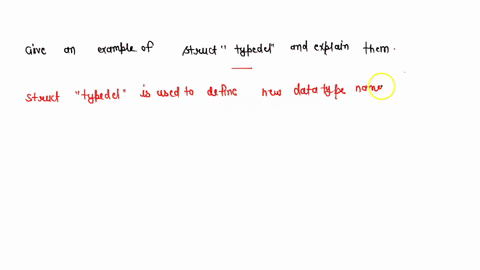 Give an example of struct "typedef" and explain them.
struct "typedef" is used to define new data type name